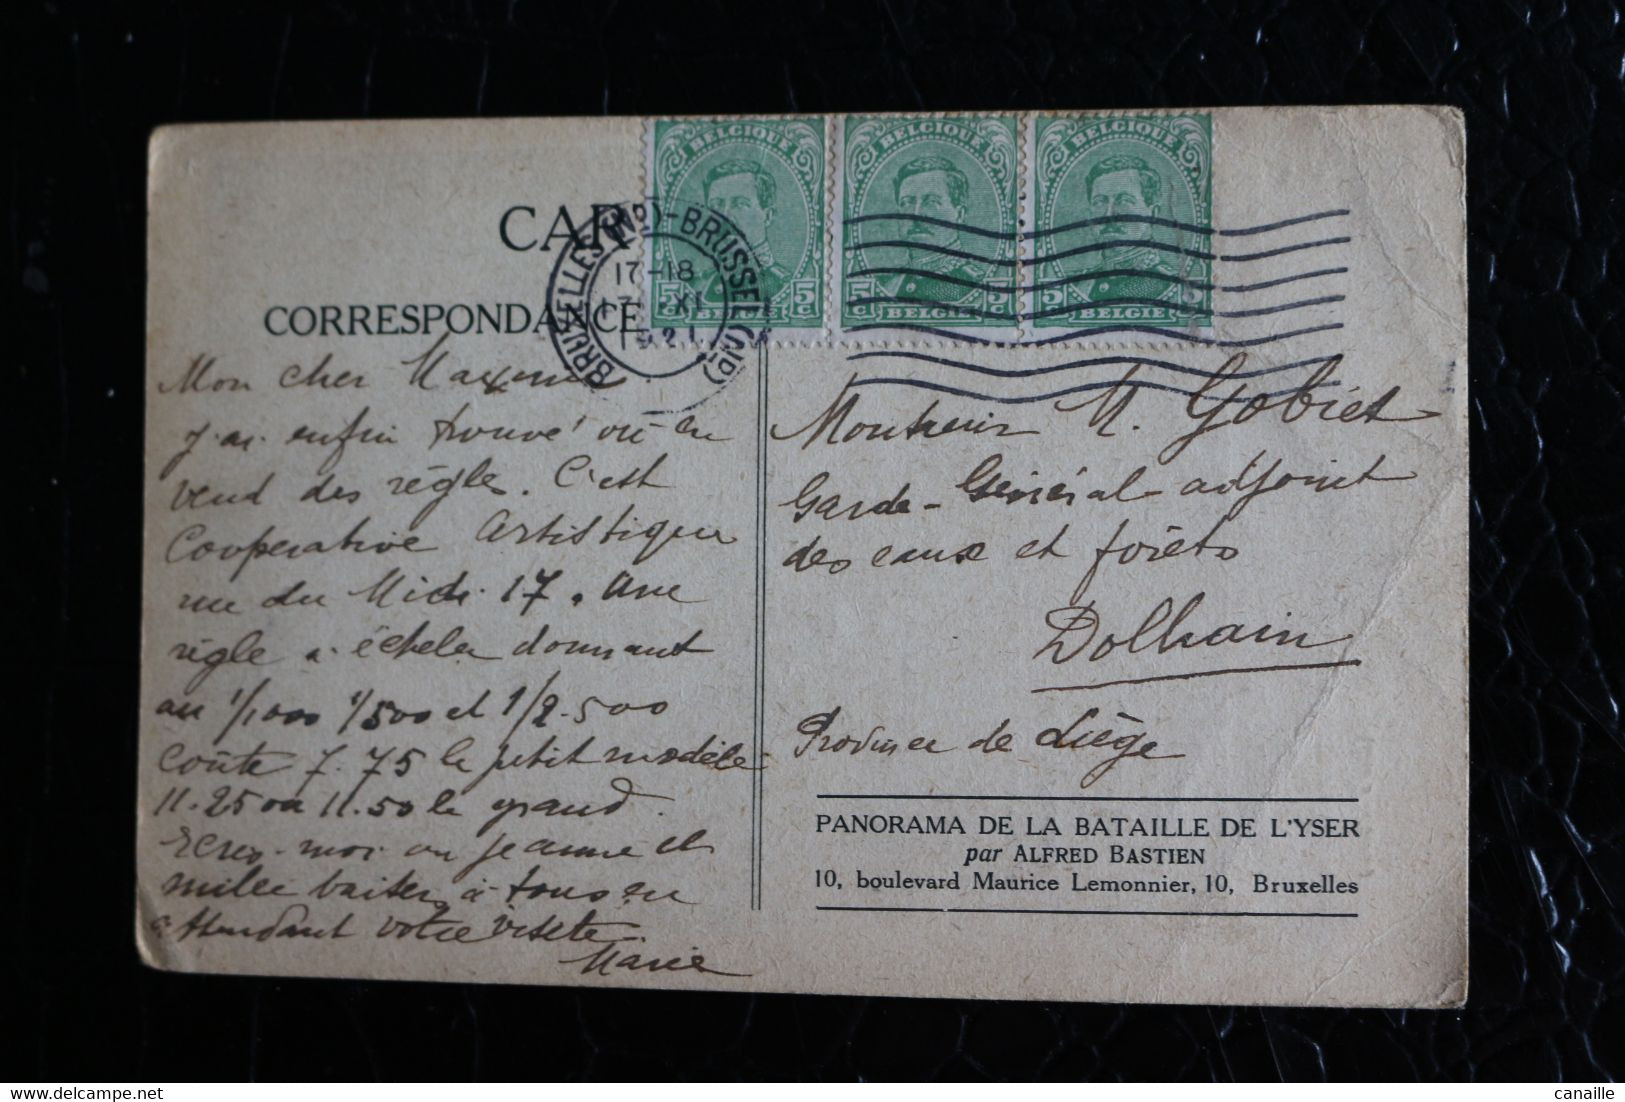 CAR
CORRESPONDANCE
BELGIQUE BELGIQUE BELGIQUE
5c 5c 5c 5c 5 5
BELGIE BELGIE BELGIE
BRUXELLES (ND)-BRUSSEL (ND)
17-18
17 XI
1921
Mon cher Maxime
j'ai enfin trouvé où on
vend des règles. C'est
Coopérative Artistique
rue du Midi 17. Une
règle à échelle donnant
au 1/1000 1/500 et 1/2.500
coûte 7.75 le petit modèle
11.25 ou 11.50 le grand.
Ecrez-moi ou Jeanne et
mille baisers à tous en
attendant votre visite.
Marie
Monsieur M. Gobiet
Garde-Général adjoint
des eaux et forêts
Dolhain
Province de Liège
PANORAMA DE LA BATAILLE DE L'YSER
par ALFRED BASTIEN
10, boulevard Maurice Lemonnier, 10, Bruxelles
delcampe.net
canaille